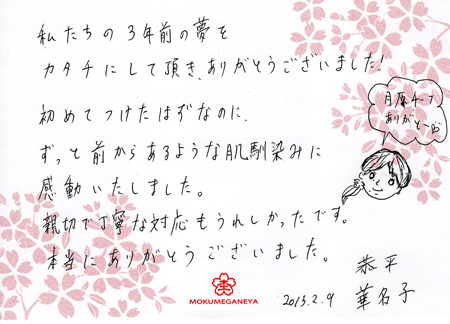 私たちの3年前の夢を
カタチにして頂き、ありがとうございました!
初めてつけたはずなのに、
ずっと前からあるような肌馴染みに
感動いたしました。
親切で丁寧な対応もうれしかったです。
本当にありがとうございました。
月原チーフ
ありがとー
恭平
華名子
2013.2.9
MOKUMEGANEYA